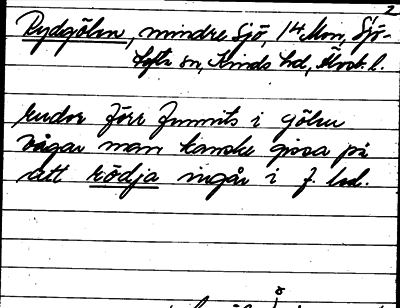 2
Rydgölen, mindre sjö, 14 Mon, Sjö-
tofta sn, Kinds hd, Älvsb. l.
rudor förr funnits i gölen
Vågar man kanske gissa på
att rödja ingår i f. led.